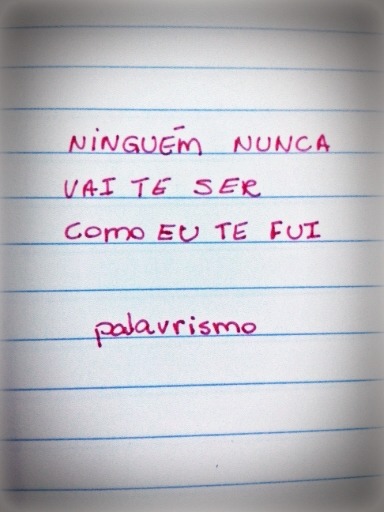 NINGUÉM NUNCA
VAI TE SER
COMO EU TE FUI
palavrismo